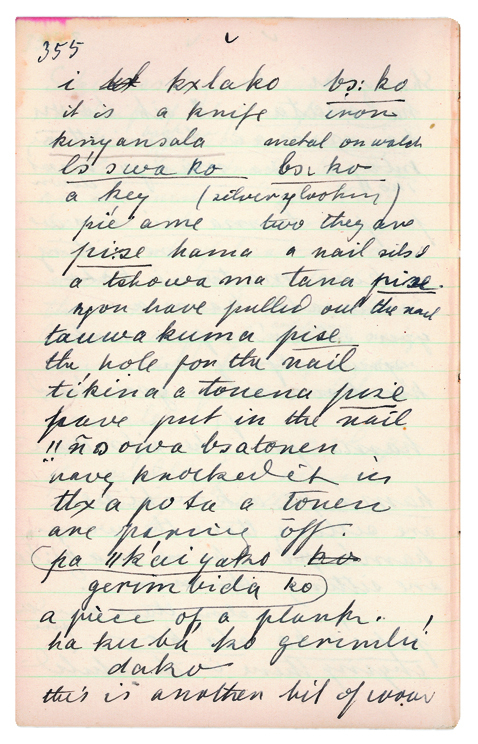 355
i kxlako bs: ko
it is a knife iron
kinyansala metal on watch
ls'swa ko bsı ko
a key (silvery looking)
pie ame two they are
pi:se hama a nail
a tshowa ma tana pise.
you have pulled out the nail
tauwa kuma pise
the hole for the nail
tikina a tonena pise
have put in the nail
owa bsatonen
have knocked it in
tlx'a po sa a tonen
are paring off.
pa "k'ai yako ko
gerimbida ko
a piece of a plank.
ha kuba ko gerimbi
dako
this is another bit of wood